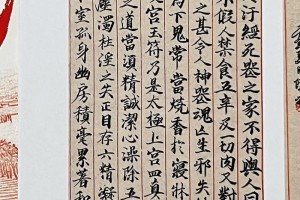 汙經死喪之家不得與人
不假人禁食五辛及切肉又對
之甚令人神喪魂亡生邪失
下鬼常當燒香於寢牀
宮玉符乃是太極上宮四真
之道當須精誠潔心澡除五
塵濁杜淫之失正目存六精凝
室孤身幽房積毫累著和